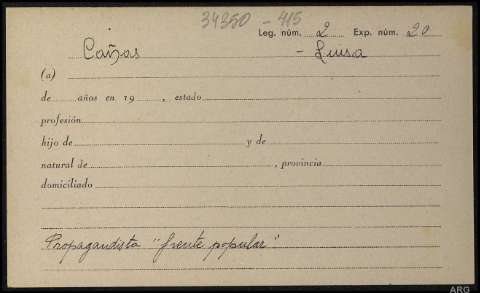 34350 - 415
Leg. núm. 2 Exp. núm. 20
Cañas - Luisa
(a)
de años en 19 , estado
profesión
hijo de y de
natural de , provincia
domiciliado
Propagandista "frente popular"
ARG